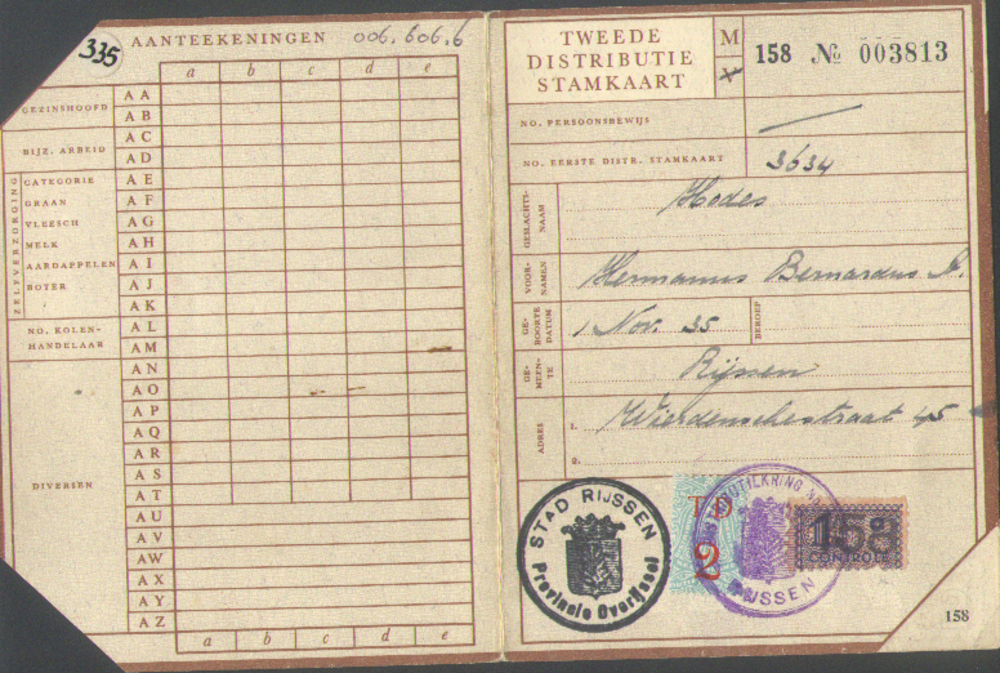 335
AANTEEKENINGEN 006.606.6
a b c d e
GEZINSHOOFD
AA
AB
BIJZ. ARBEID
AC
AD
ZELFVERZORGING
CATEGORIE AE
GRAAN AF
VLEESCH AG
MELK AH
AARDAPPELEN AI
BOTER AJ
AK
NO. KOLEN-
HANDELAAR
AL
AM
AN
AO
AP
AQ
AR
DIVERSEN
AS
AT
AU
AV
AW
AX
AY
AZ
a b c d e
TWEEDE
DISTRIBUTIE
STAMKAART
M
158 № 003813
NO. PERSOONSBEWIJS
NO. EERSTE DISTR. STAMKAART 3634
GESLACHTS-
NAAM
Hodes
VOOR-
NAMEN
Hermanus Bernardus
GE-
BOORTE
DATUM
1 Nov. 35
BEROEP
GE-
MEEN-
TE
Rijssen
ADRES
1. Wierdenschestraat 45
2.
STAD RIJSSEN
Provincie Overijssel
TD
2
RIJSSEN
158
CONTROLE
158